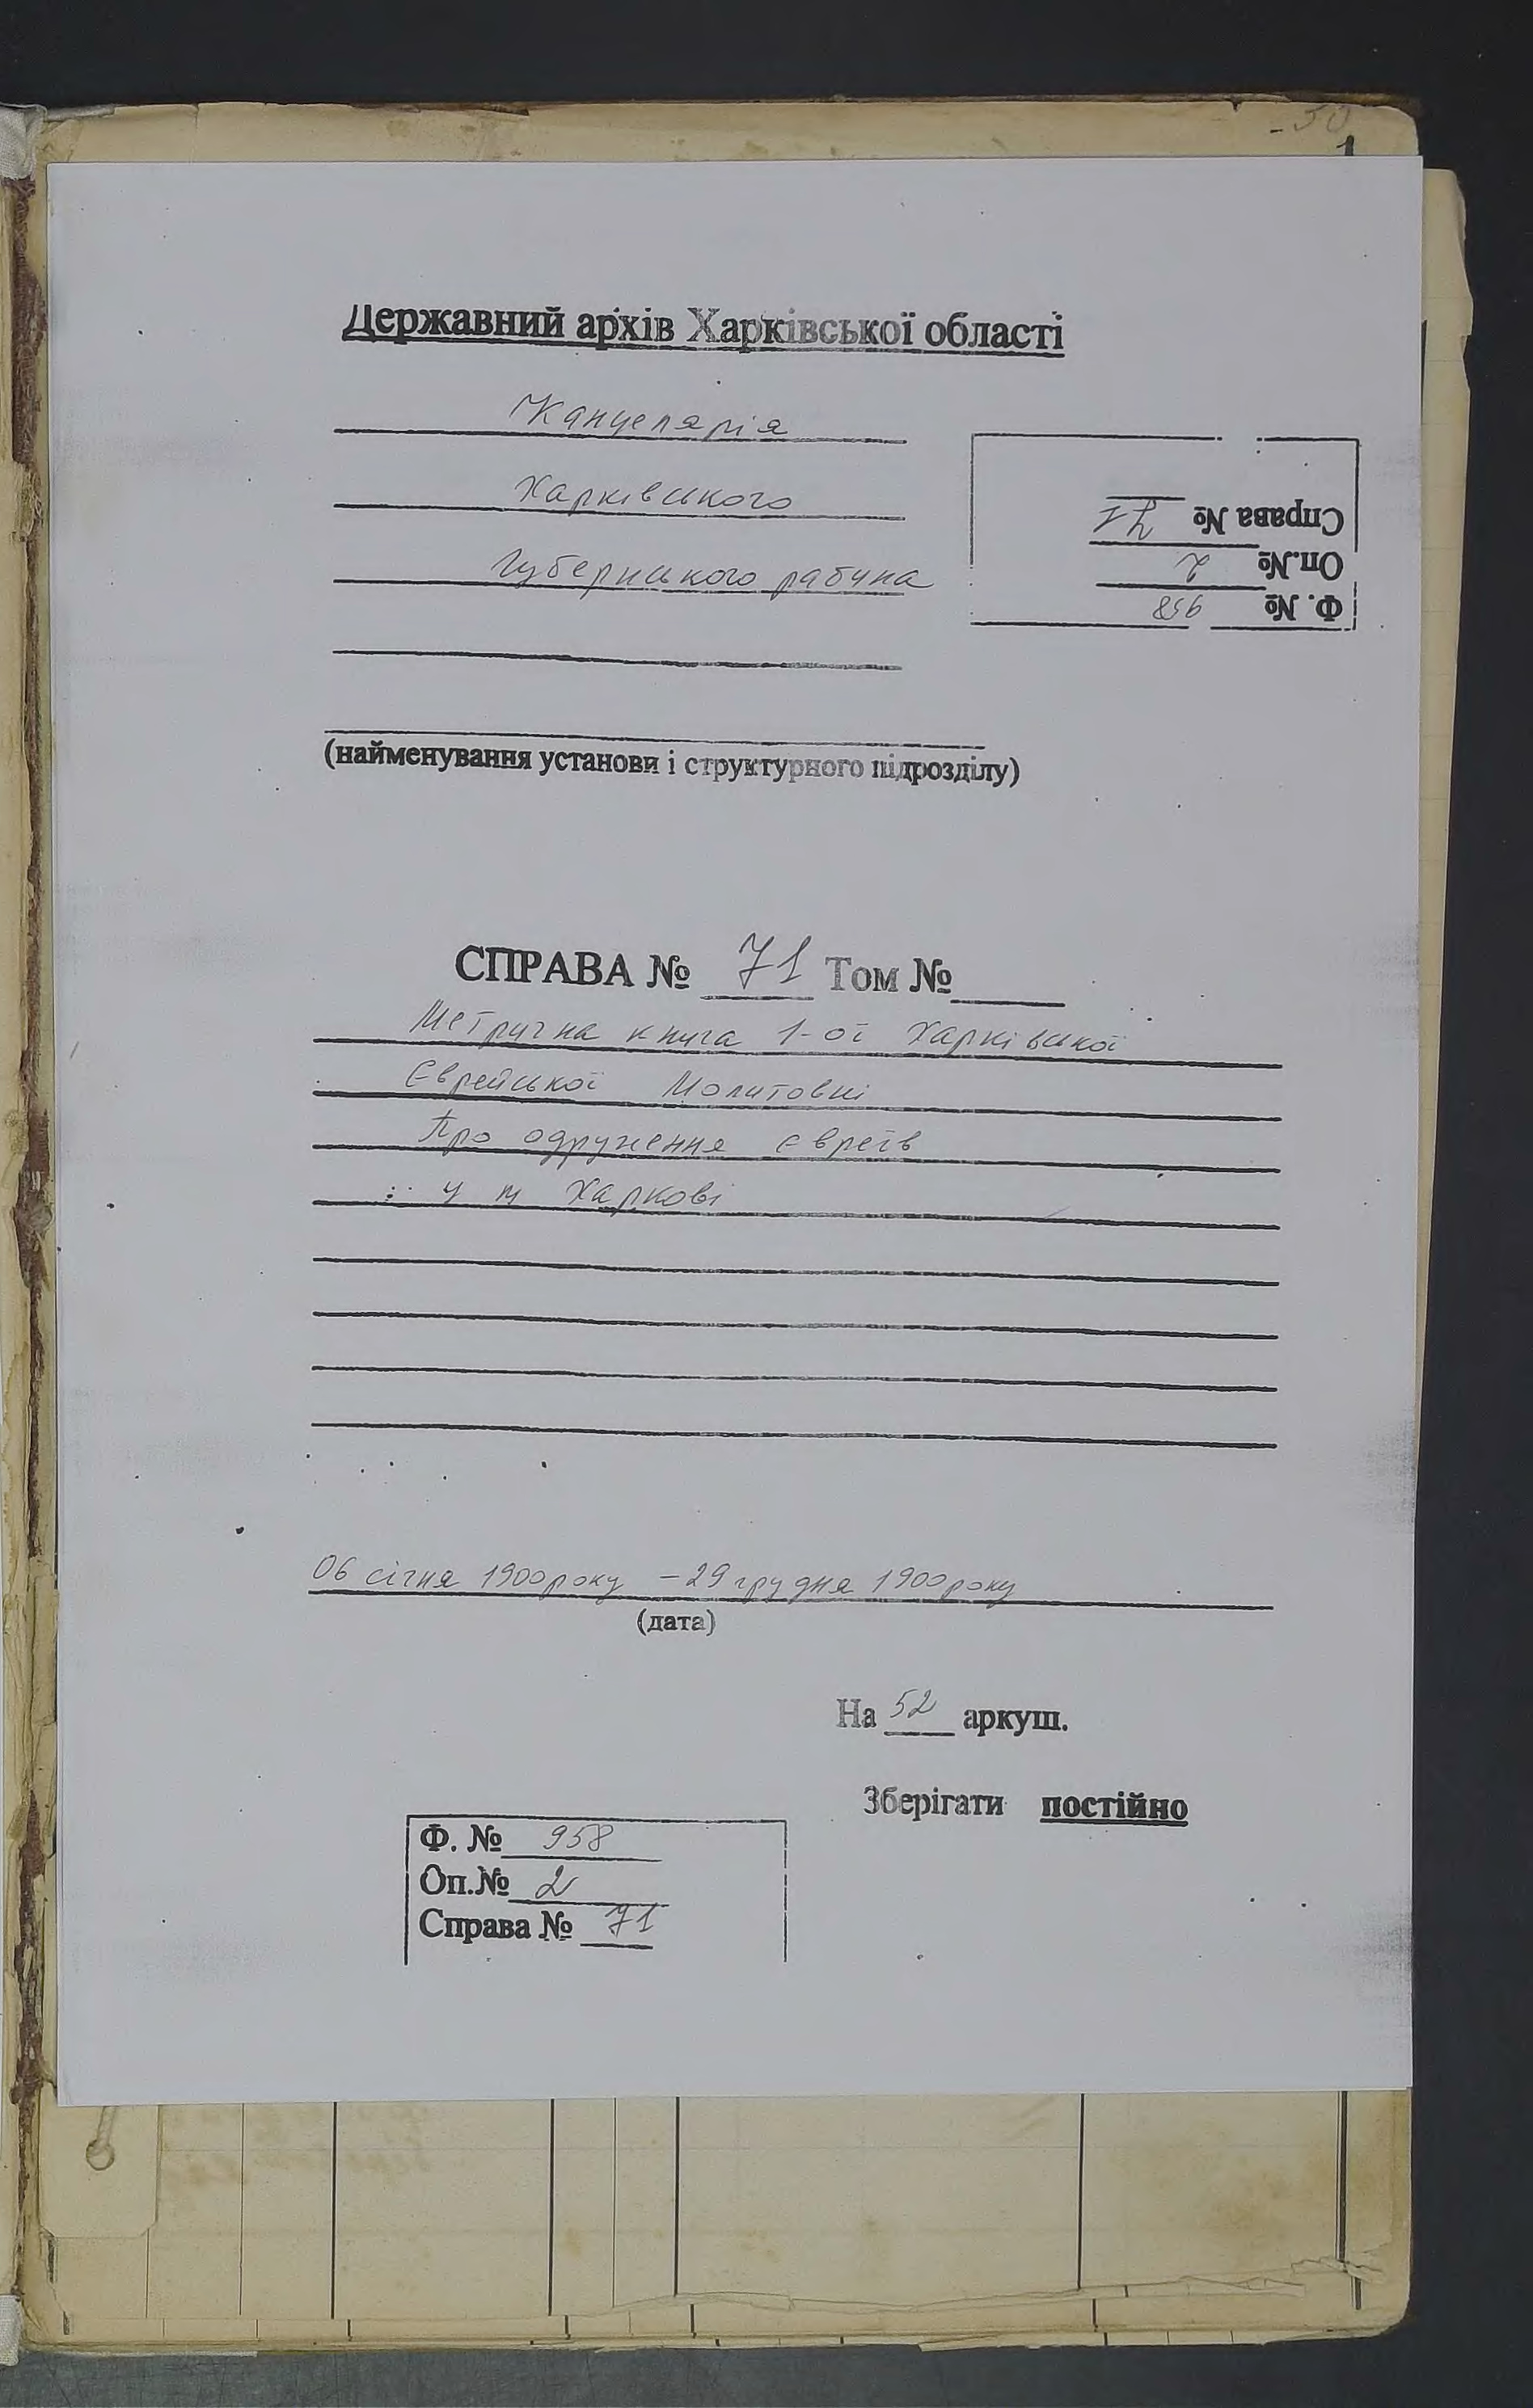 - 50
1
Державний архів Харківської області
Канцелярія
Харківського
Губернського рабина
Справа № 71
Оп.№ 2
Ф. № 958
(найменування установи і структурного підрозділу)
СПРАВА № 71 Том №
Метрична книга 1-ої Харківської
Єврейської Молитовні
Про одруження євреїв
у м Харкові
06 січня 1900 року – 29 грудня 1900 року
(дата)
На 52 аркуш.
Зберігати постійно
Ф. № 958
Оп.№ 2
Справа № 71